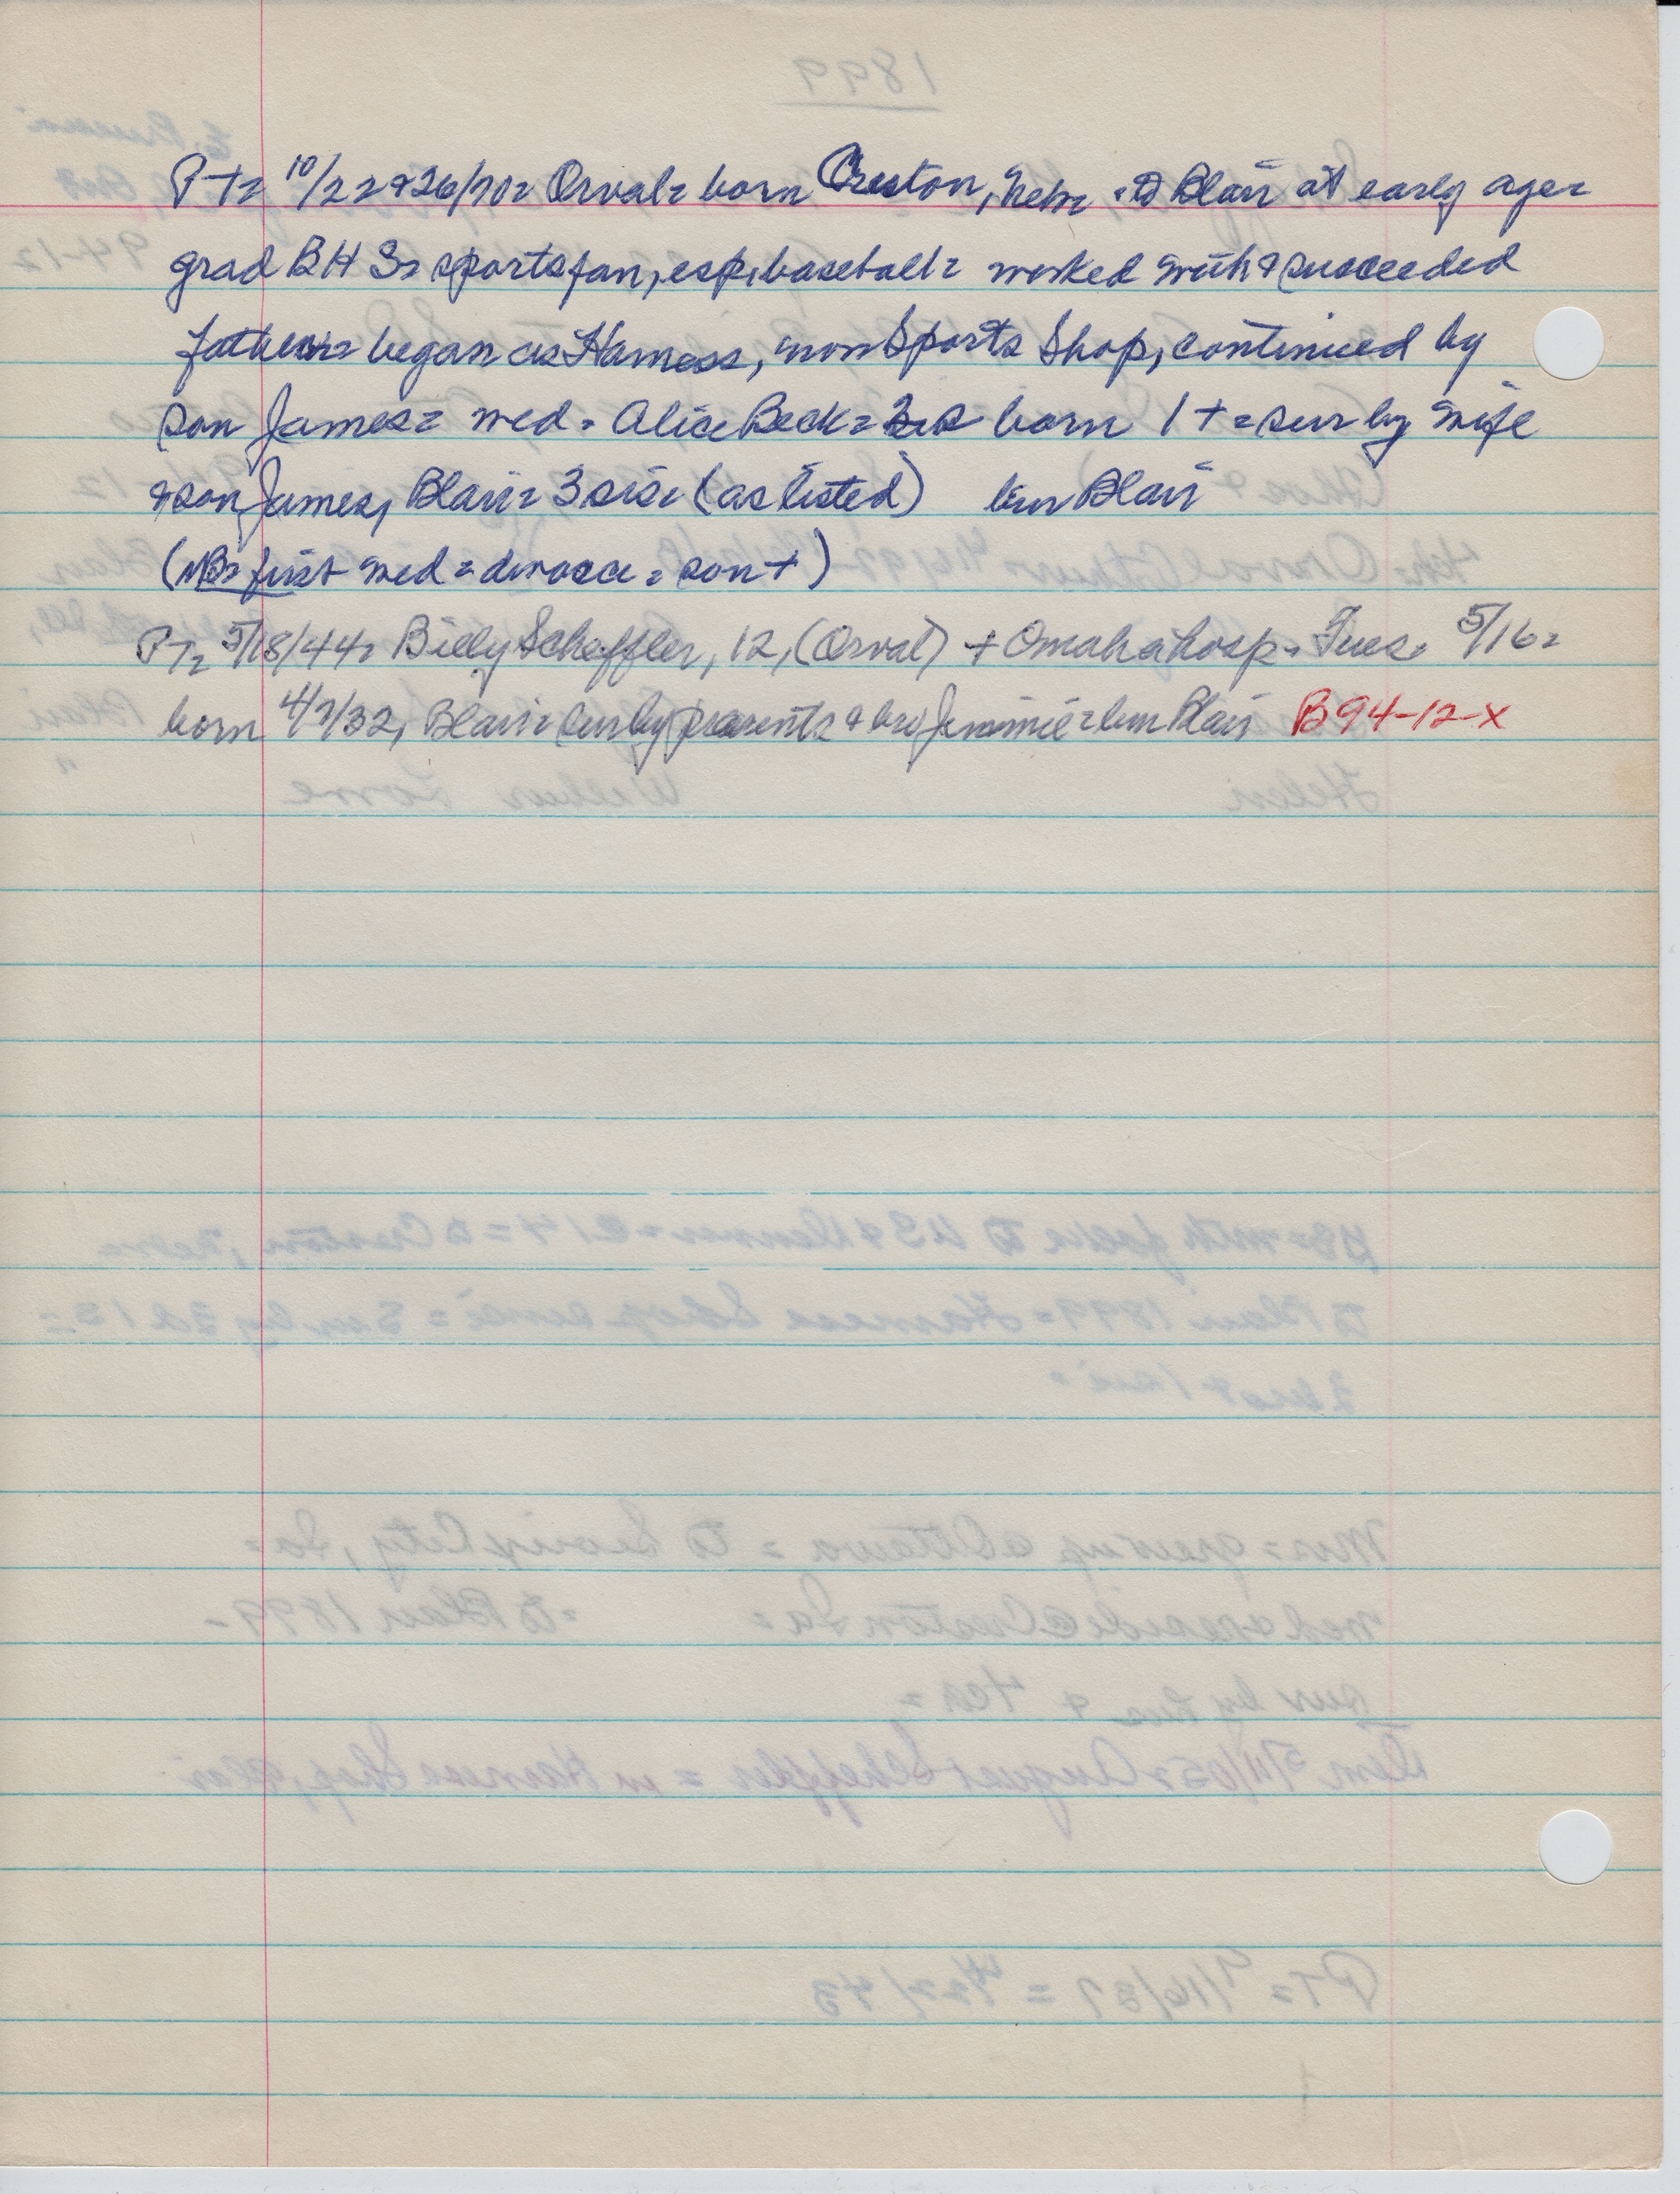 PT= 10/22 & 26/70= Orval= born Creston, Nebr = to Blair at early age=
grad BHS= sports fan, esp. baseball= worked with & succeeded
father= began as Harness, now Sports Shop, continued by
son James= med = Alice Beck= born 1+ = sur by wife
& son James, Blair= 3 sis= (as listed) bur Blair
(NB= first med = divorce = son +)
PT= 5/18/44= Billy Scheffler, 12, (Orval) + Omaha hosp = Tues. 5/16=
born 4/7/32, Blair= sur by parents & bro Jimmie= bur Blair B94-12-X